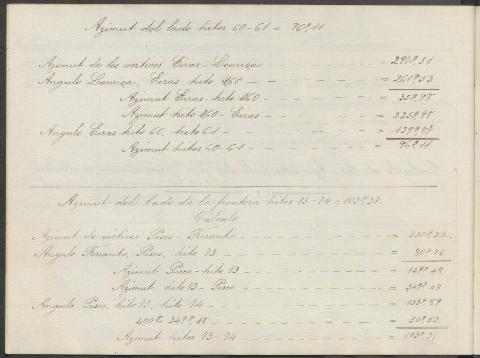 Azimut del lado hitos 60-61 = 96º,11
Azimut de los vertices Eiras-Louriça = 290º,51
Angulo Louriça, Eiras, hito 60 = 261º,53
Azimut Eiras-hito 60 = 352º,98
Azimut hito 60-Eiras = 225º,98
Angulo Eiras hito 60, hito 61 = 139º,87
Azimut hitos 60-61 = 96º,11
Azimut del lado de la frontera hitos 73-74 = 103º,37.
Calculo
Azimut de vértices Pisco-Ferranho = 230º,22
Angulo Ferranho, Pisco, hito 73 = 80º,74
Azimut Pisco-hito 73 = 149º,48
Azimut hito 73-Pisco = 349º,48
Angulo Pisco, hito 73, hito 74 = 153º,89
400º- 349º,48 = 50º,52
Azimut hitos 73-74 = 103º,37